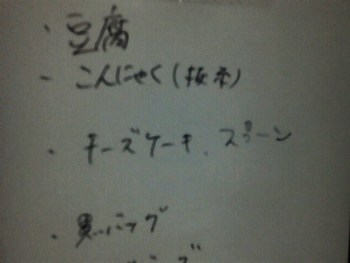 ・豆腐
・こんにゃく(板糸)
・チーズケーキ、スプーン
・黒いバッグ